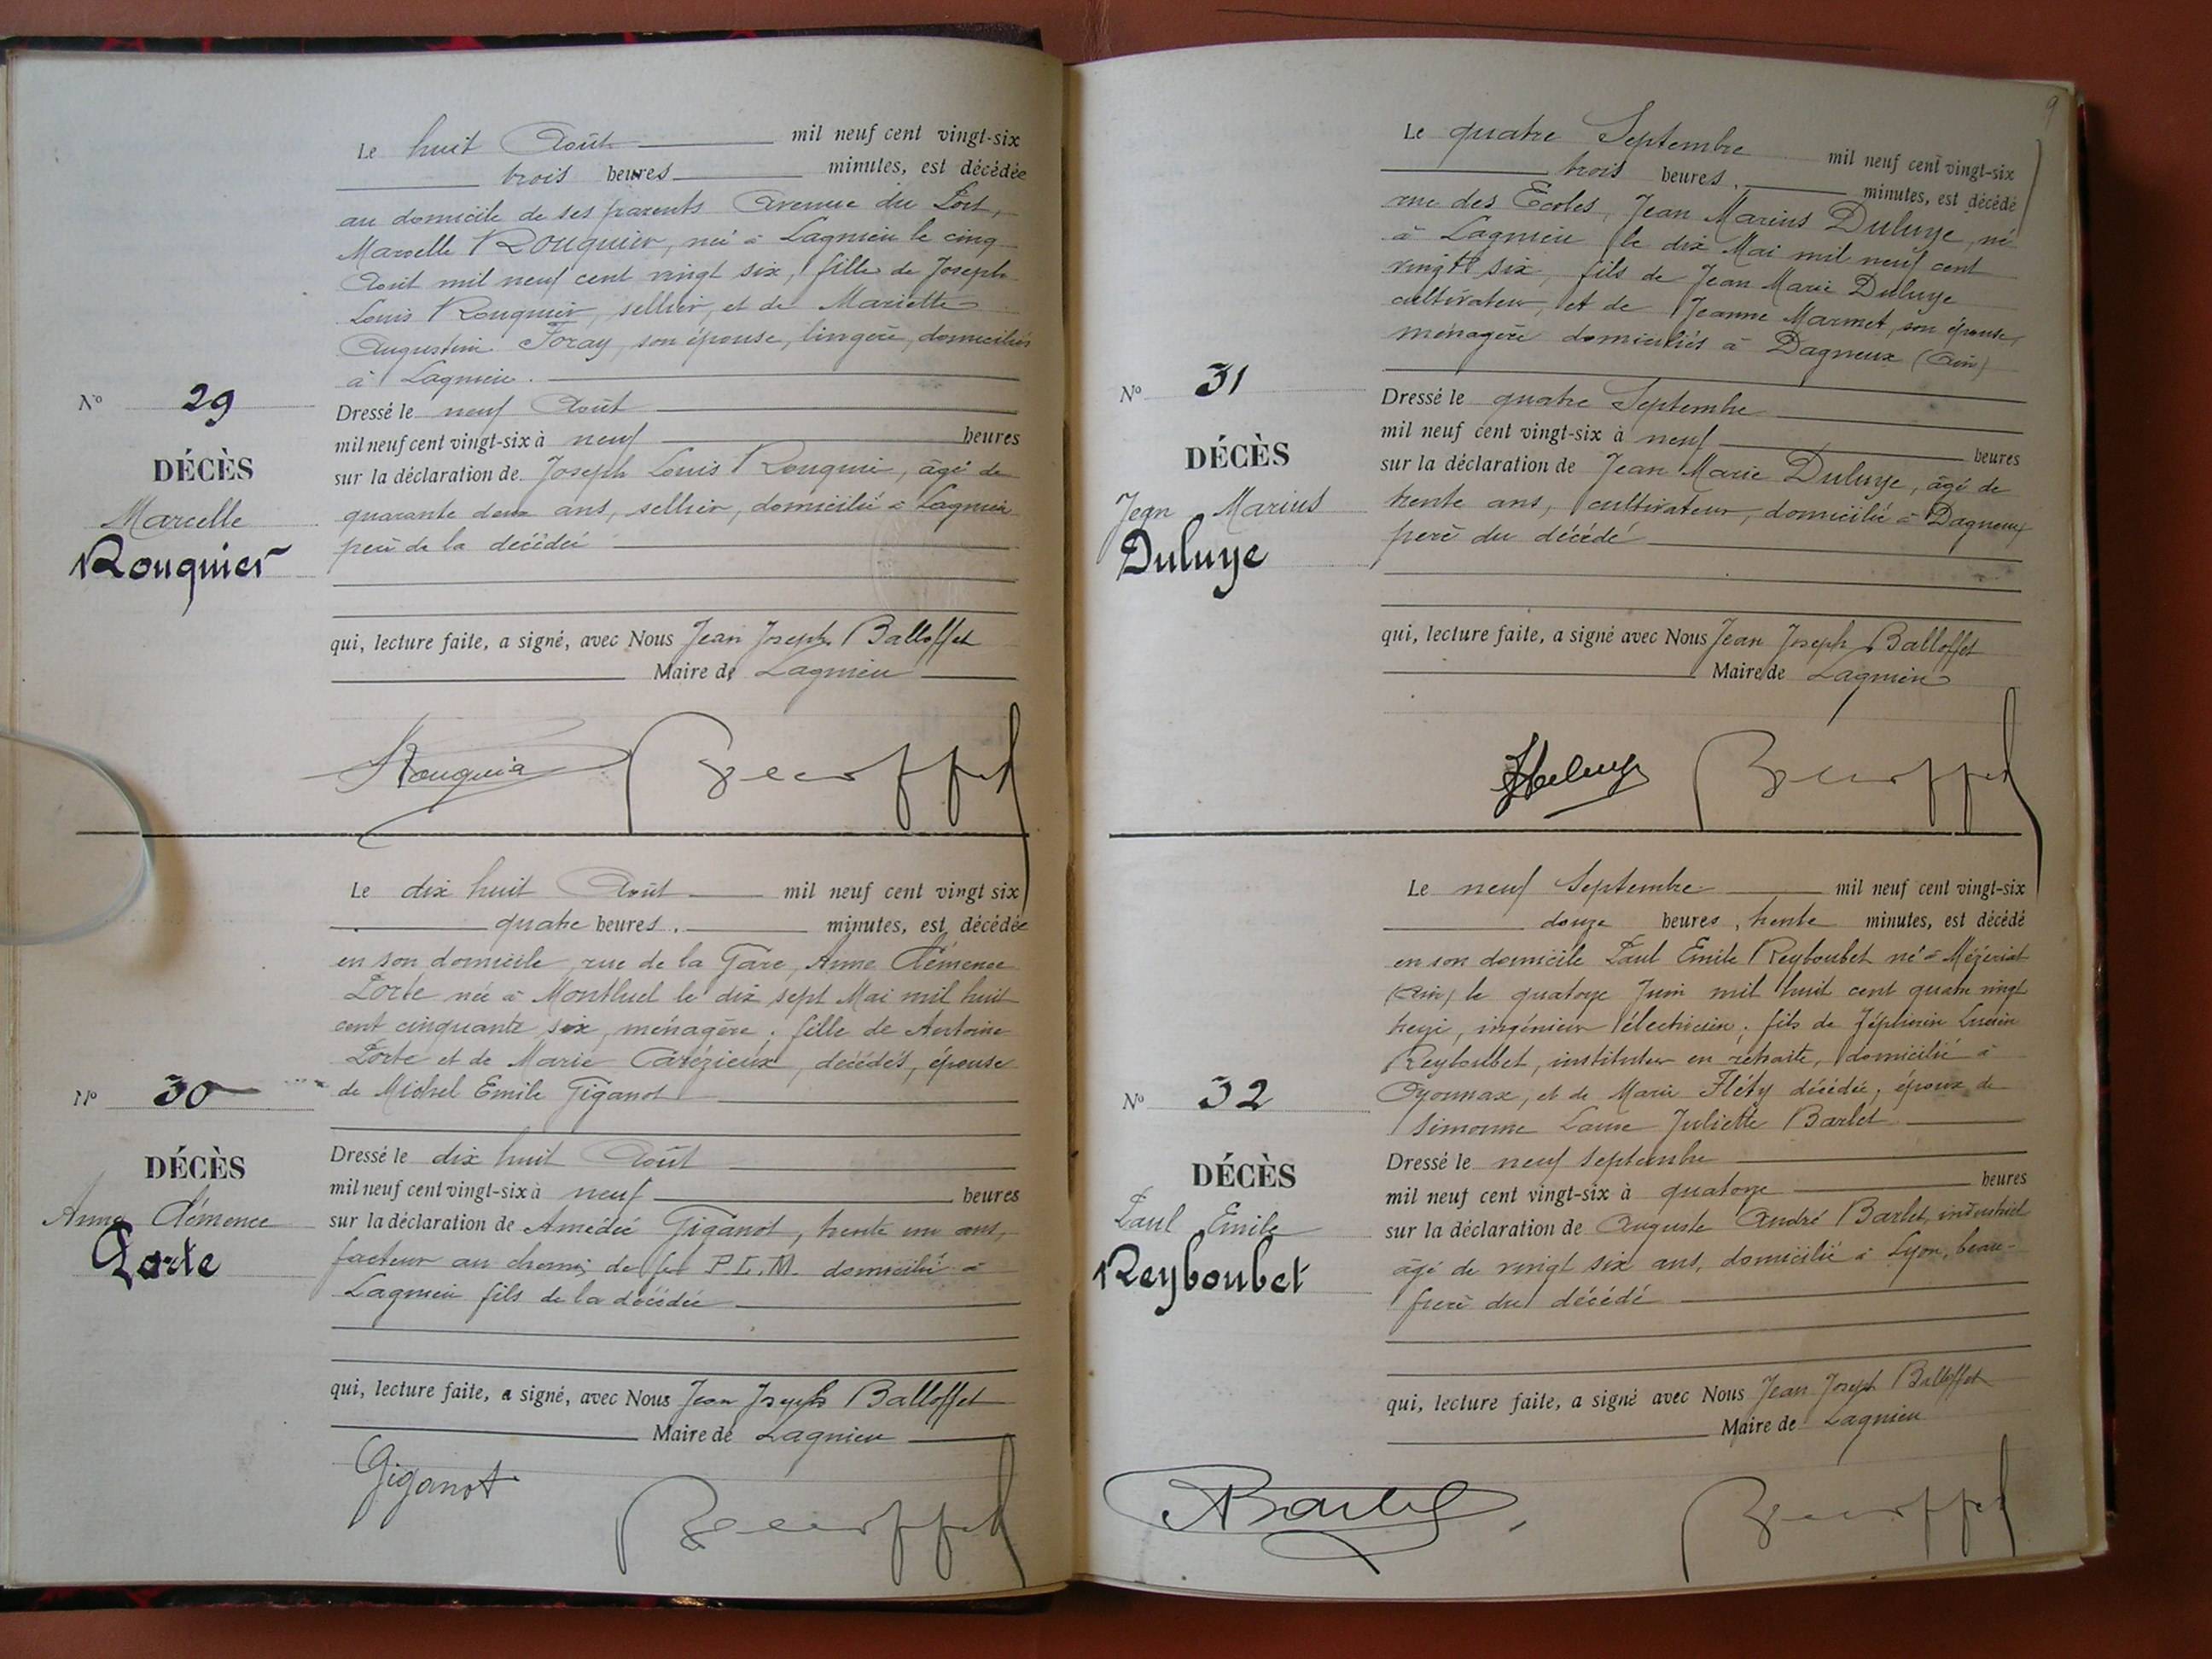 Le huit Août mil neuf cent vingt-six
trois heures minutes, est décédée
au domicile de ses parents Avenue du Port,
Marcelle Rouquier, née à Lagnieu le cinq
Août mil neuf cent vingt six, fille de Joseph
Louis Rouquier, sellier, et de Mariette
Augustine Foray, son épouse, lingère, domiciliés
à Lagnieu.
Nº 29
DÉCÈS
Marcelle
Rouquier
Dressé le neuf Août
mil neuf cent vingt-six à neuf heures
sur la déclaration de Joseph Louis Rouquier, âgé de
quarante deux ans, sellier, domicilié à Lagnieu
père de la décédée
qui, lecture faite, a signé, avec Nous Jean Joseph Balloffet
Maire de Lagnieu
Rouquier Balloffet
Le dix huit Août mil neuf cent vingt six
quatre heures, minutes, est décédée
en son domicile, rue de la Gare, Anne Clémence
Porte née à Montluel le dix sept Mai mil huit
cent cinquante six, ménagère, fille de Antoine
Porte et de Marie Carézieux, décédés, épouse
de Michel Emile Giganot
Nº 30
DÉCÈS
Anne Clémence
Porte
Dressé le dix huit Août
mil neuf cent vingt-six à neuf heures
sur la déclaration de Amédée Giganot, trente un ans,
facteur au chemin de fer P.L.M. domicilié à
Lagnieu fils de la décédée
qui, lecture faite, a signé, avec Nous Jean Joseph Balloffet
Maire de Lagnieu
Giganot Balloffet
9
Le quatre Septembre mil neuf cent vingt-six
trois heures, minutes, est décédé
rue des Ecoles, Jean Marius Duluye, né
à Lagnieu le dix Mai mil neuf cent
vingt six, fils de Jean Marie Duluye
cultivateur, et de Jeanne Marmet, son épouse,
ménagère domiciliés à Dagneux (Ain)
Nº 31
DÉCÈS
Jean Marius
Duluye
Dressé le quatre Septembre
mil neuf cent vingt-six à neuf heures
sur la déclaration de Jean Marie Duluye, âgé de
trente ans, cultivateur, domicilié à Dagneux
père du décédé
qui, lecture faite, a signé avec Nous Jean Joseph Balloffet
Maire de Lagnieu
JDuluye Balloffet
Le neuf Septembre mil neuf cent vingt-six
douze heures, trente minutes, est décédé
en son domicile Paul Emile Reyboubet né à Mézériat
(Ain) le quatorze Juin mil huit cent quatre vingt
treize, ingénieur électricien, fils de Zéphirin Lucien
Reyboubet, instituteur en retraite, domicilié à
Oyonnax, et de Marie Fléty décédée, époux de
Simonne Laure Juliette Barlet
Nº 32
DÉCÈS
Paul Emile
Reyboubet
Dressé le neuf Septembre
mil neuf cent vingt-six à quatorze heures
sur la déclaration de Auguste André Barlet, industriel
âgé de vingt six ans, domicilié à Lyon, beau-
frère du décédé
qui, lecture faite, a signé avec Nous Jean Joseph Balloffet
Maire de Lagnieu
ABarlet Balloffet